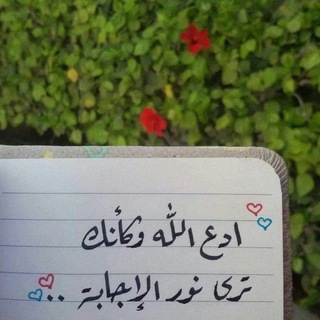 ادع الله وكأنك
ترى نور الإجابة ..